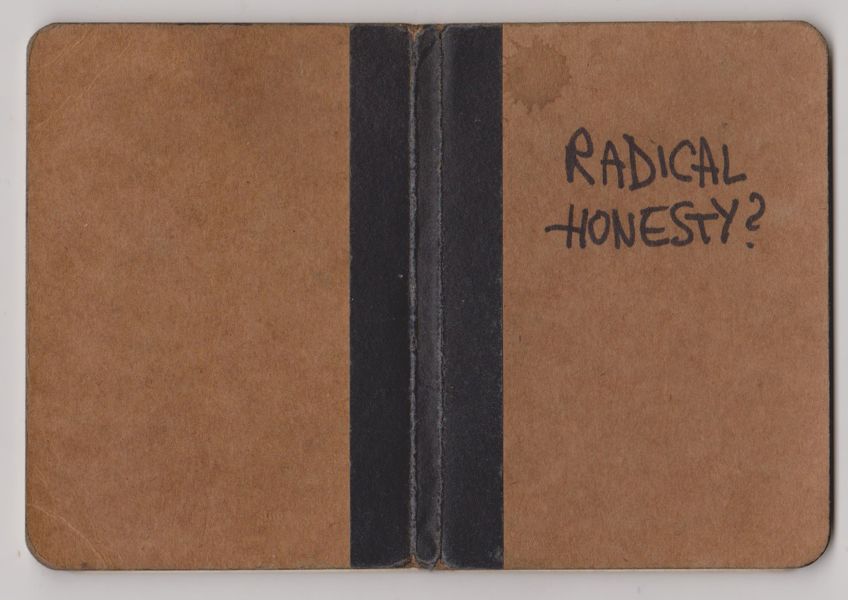 RADICAL
HONESTY?